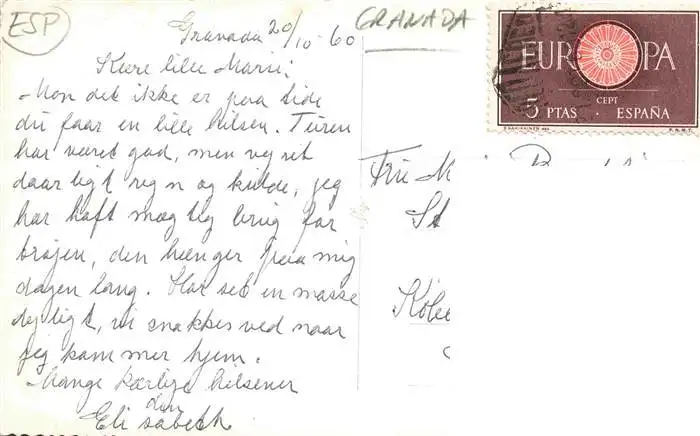 ESP
Granada 20/10-60
GRANADA
EUROPA
CEPT
5 PTAS · ESPAÑA
Kære lille Marie!
Mon det ikke er paa tide
du faar en lille hilsen. Turen
har været god, men vejret
daarligt regn og kulde, jeg
har haft mægtig brug for
trøjen, den hænger paa mig
dagen lang. Har set en masse
dejligt, vi snakkes ved naar
jeg kommer hjem.
Mange kærlige hilsener
din
Elisabeth
Fru
St